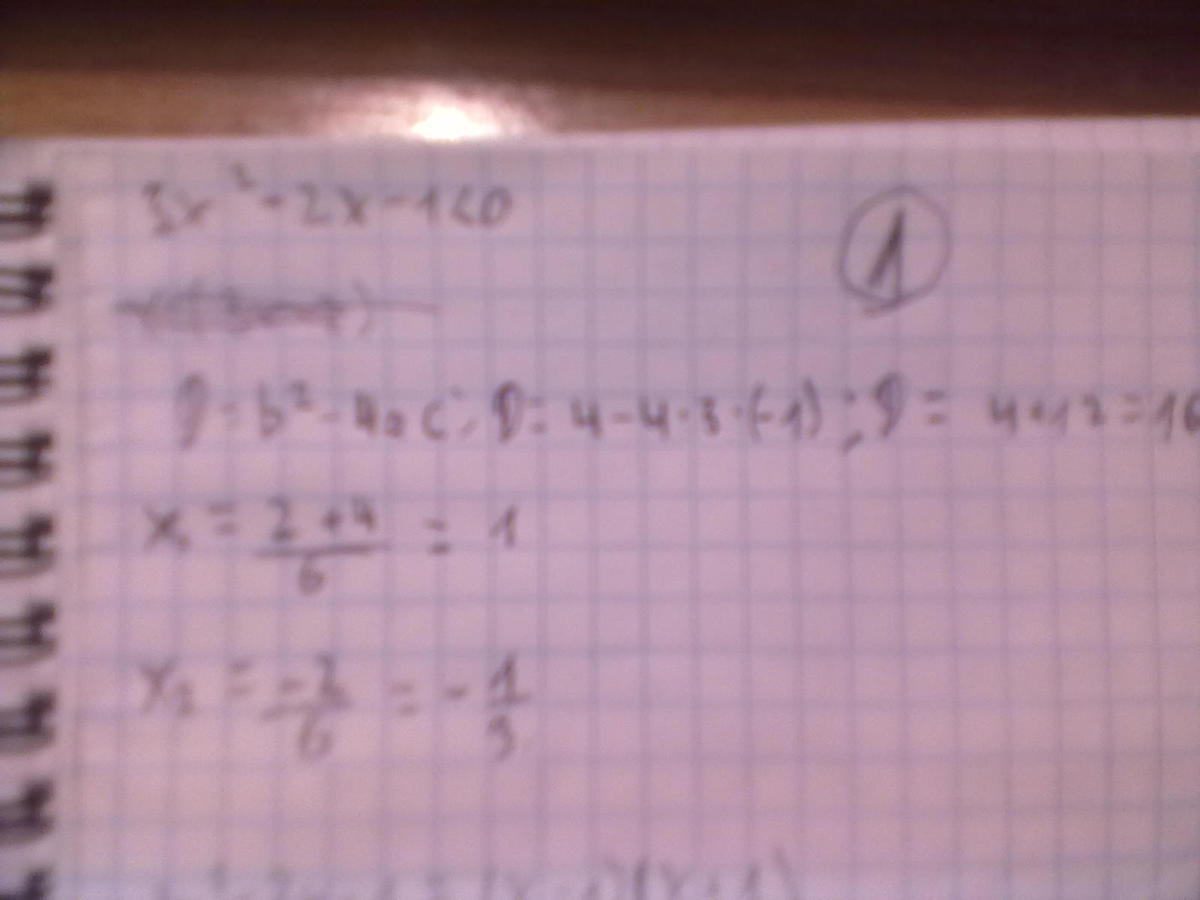 3x² - 2x - 1 < 0
1
D = b² - 4ac; D = 4 - 4·3·(-1); D = 4+12 = 16
x₁ = (2+4)/6 = 1
x₂ = -2/6 = -1/3